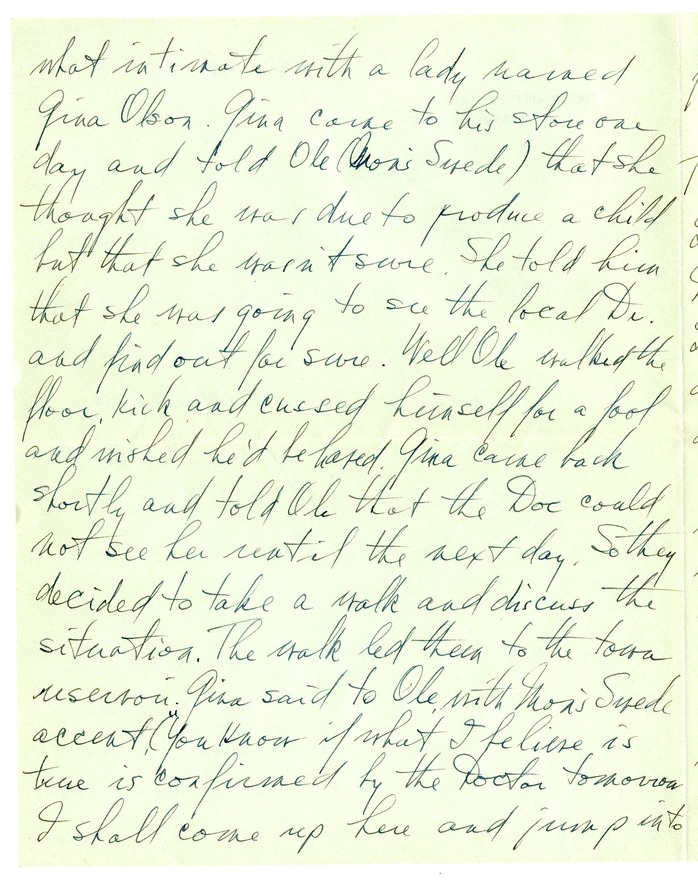 what intimate with a lady named
Gina Olson. Gina came to his store one
day and told Ole (Mom's Swede) that she
thought she was due to produce a child
but that she wasn't sure. She told him
that she was going to see the local Dr.
and find out for sure. Well Ole walked the
floor, kick and cussed himself for a fool
and wished he'd behaved. Gina came back
shortly and told Ole that the Doc could
not see her until the next day. So they
decided to take a walk and discuss the
situation. The walk led them to the town
reservoir. Gina said to Ole, with Mom's Swede
accent, ("You know if what I believe is
true is confirmed by the Doctor tomorrow
I shall come up here and jump into